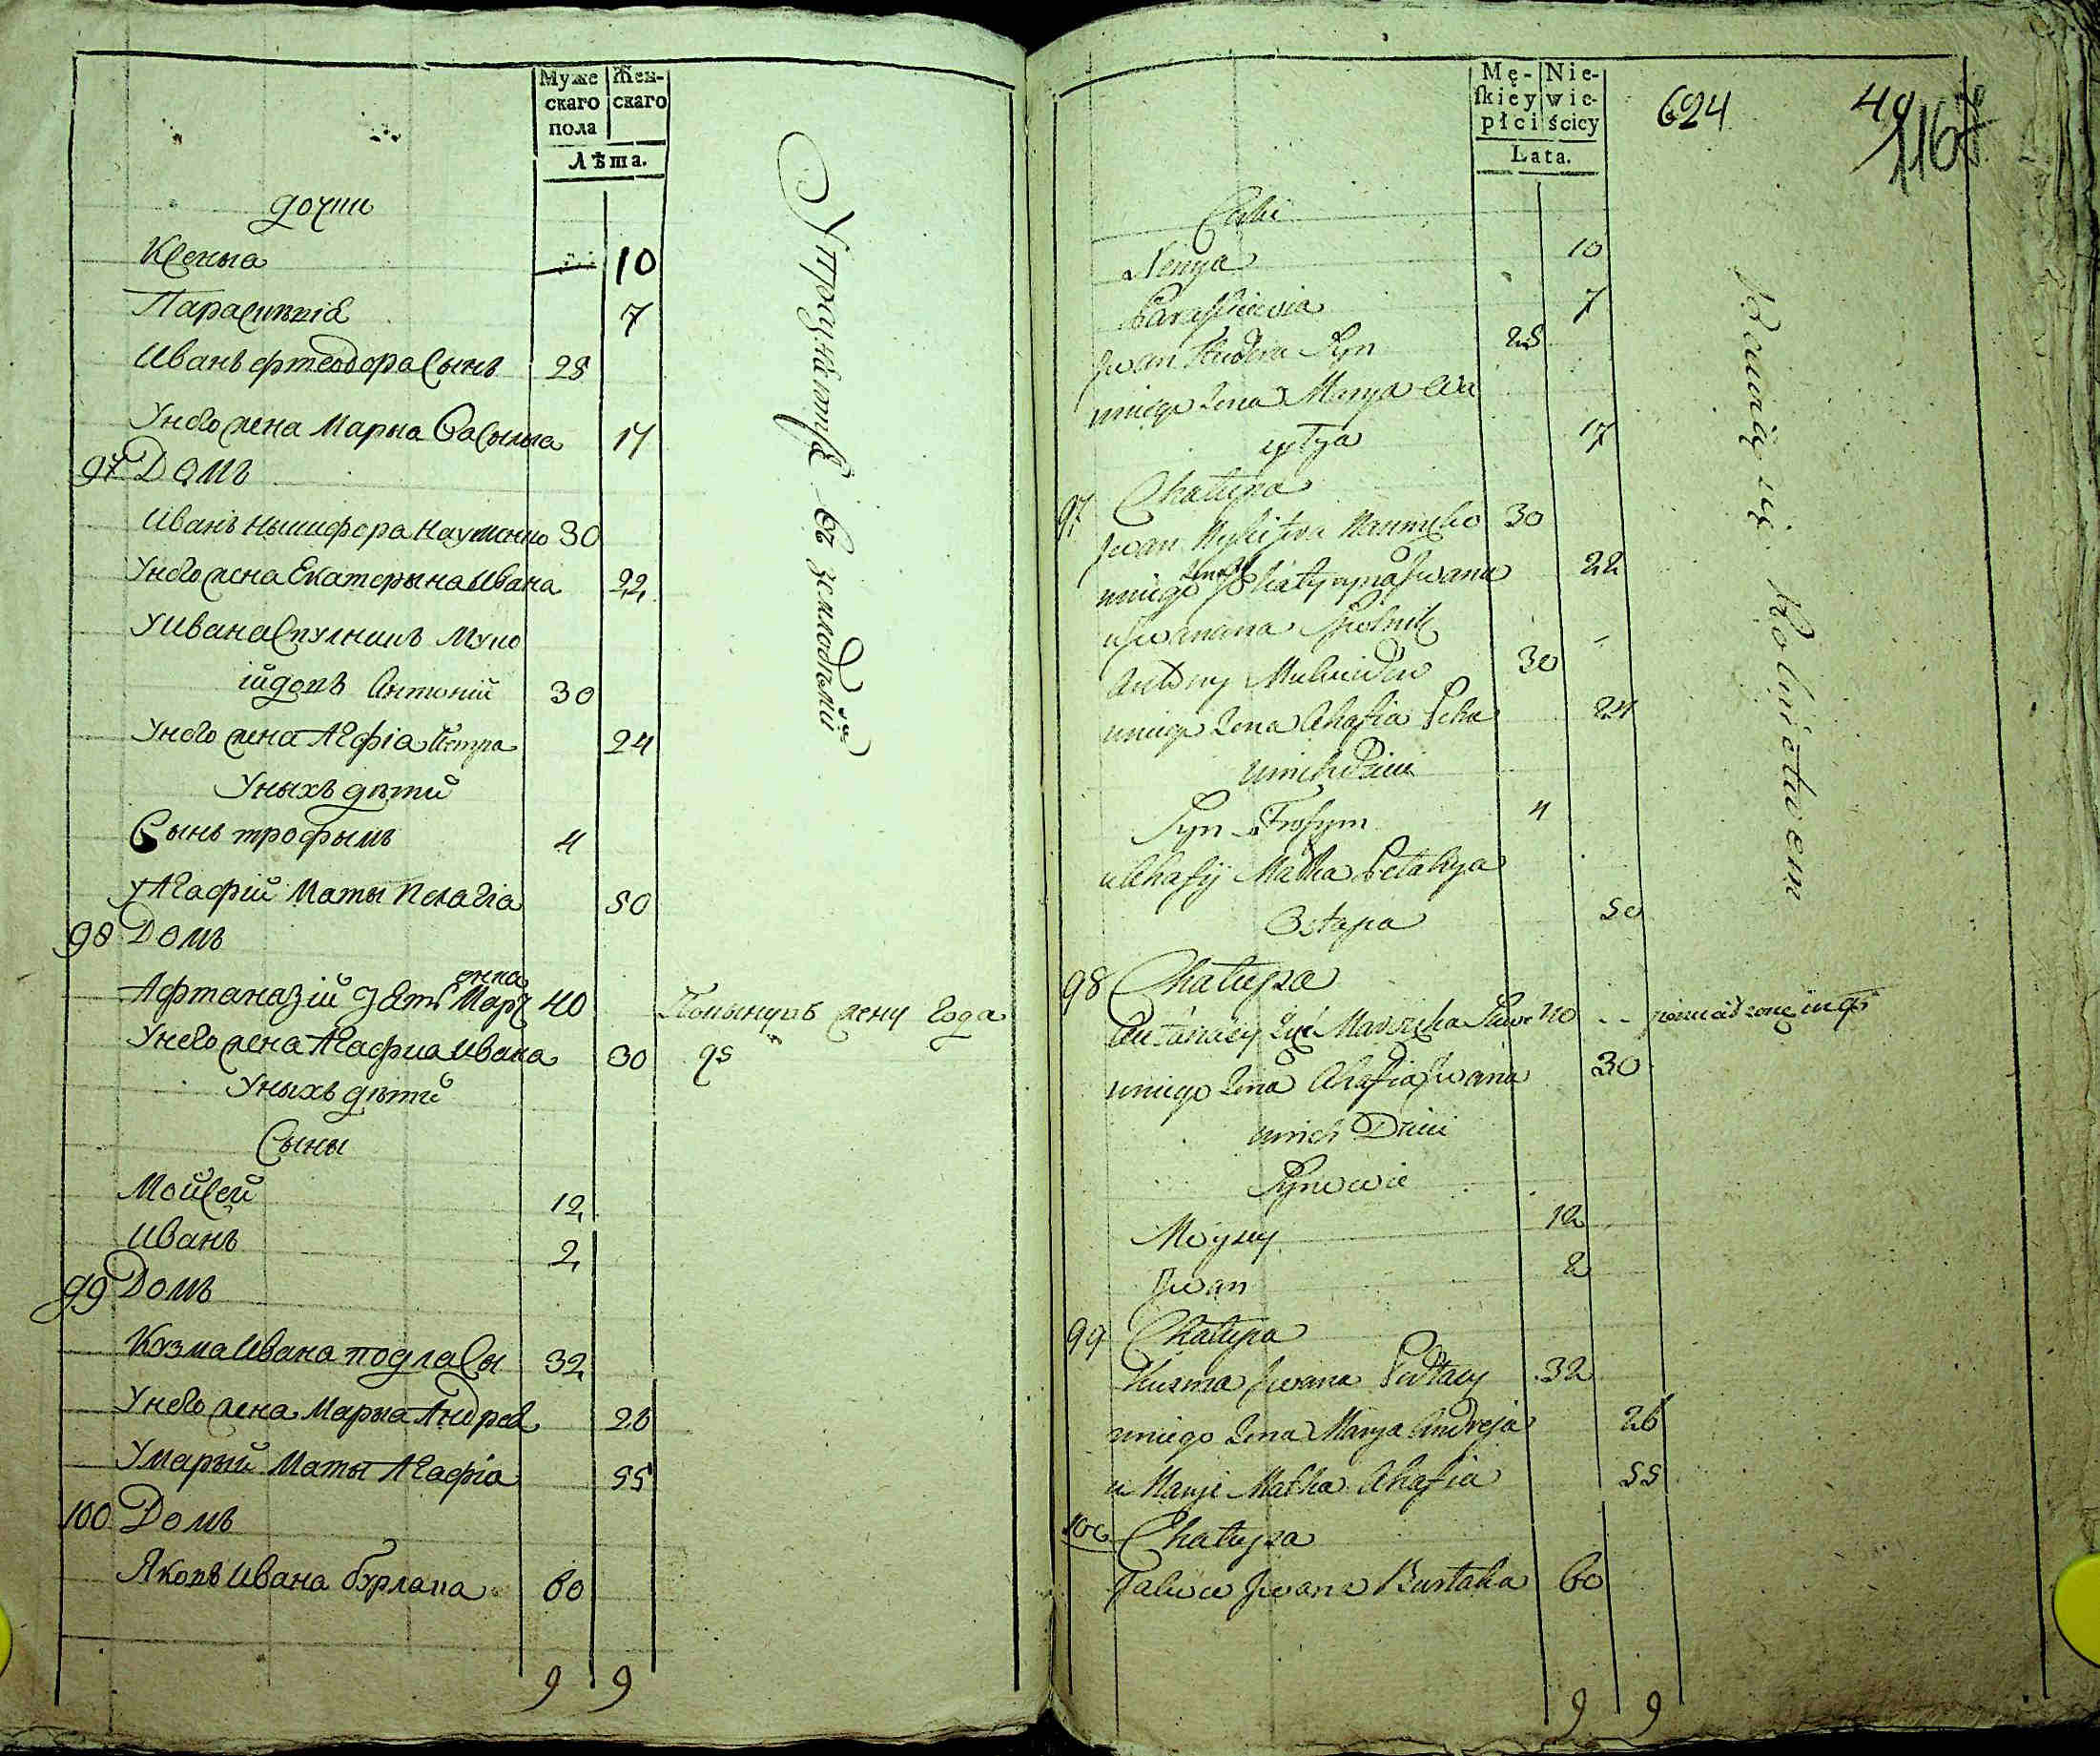 Муже Жен-
скаго скаго
пола
Лѣта.
дочки
Ксеныа 10
Парасковіа 7
Иванъ фтеодора Сынъ 25
Унего жена Марыа Васылыа 17
97 Домъ
Иванъ Ныкифора Науменко 30
Унего жена Екатерына Ивана 22
У Ивана Спулникъ
Антоній 30
Унего жена Агафіа Петра 24
Уныхъ дѣти
Сынъ трофымъ 4
У Агафіи Маты Пелагіа 50
98 Домъ
Афтаназій зять 40
Унего жена Агафиа Ивана 30
Понынувъ жену года
95
Уныхъ дѣти
Сыны
Мойсей 12
Иванъ 2
99 Домъ
Кузма Ивана подласы 32
Унего жена Марыа Андрея 26
У Марыи Маты Агафіа 55
100 Домъ
Яковъ Ивана бурлака 60
9 9
Упражняется въ земледѣлій
Mę- Nie-
ſkiey wie-
płci ściey
Lata.
624
49
116
Corki
Xenya 10
Paraskiewia 7
Jwan Teudora Syn 25
uniego zona Marya Wa
sylya 17
97 Chałupa
Jwan Nykifora Naumenko 30
uniego zona Katyryna Jwana 22
u Jwana Społnik
Antony 30
uniego zona Ahafia Petra 24
unich Dzieci
Syn Trofym 4
u Ahafij Matka Pelahya
Ostapa 50
98 Chałupa
Autanasy Zięć 40 - - porzucił zonę
uniego zona Ahafia Jwana 30
unich Dzieci
Synowie
Moysey 12
Jwan 2
99 Chałupa
Kuzma Jwana Podłasy 32
uniego zona Marya Andreja 26
u Maryi Matka Ahafia 55
100 Chałupa
Jakow Jwana Burłaka 60
9 9
Rolnictwem